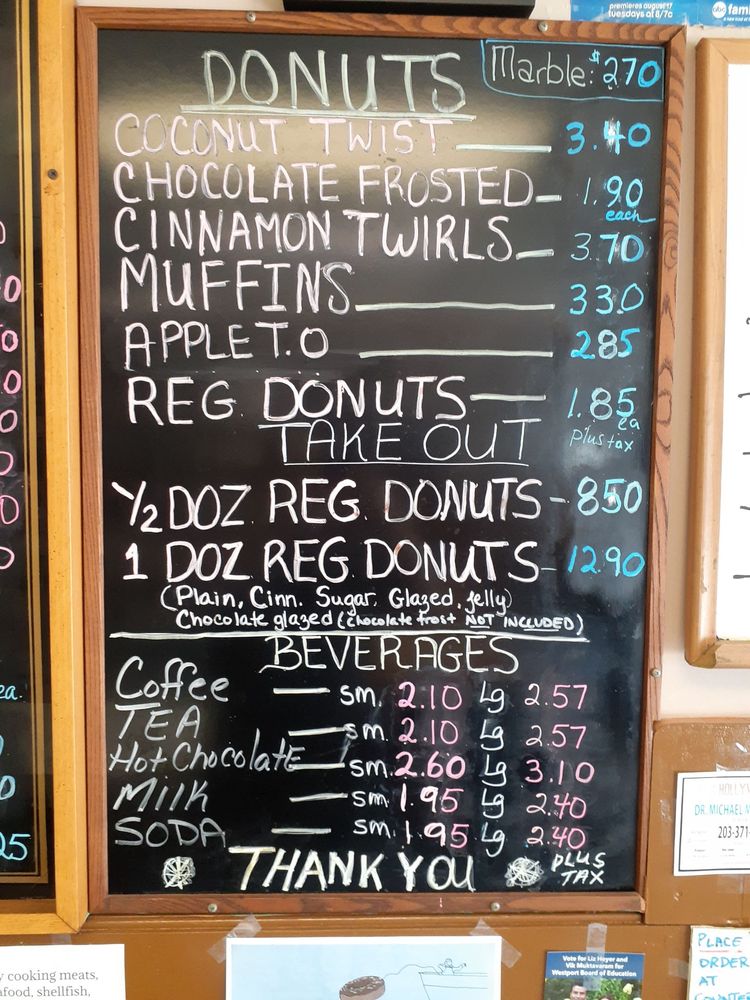 premieres august 17
tuesdays at 8/7c
abc fam
DONUTS
Marble: $2.70
COCONUT TWIST — 3.40
CHOCOLATE FROSTED - 1.90
each
CINNAMON TWIRLS - 3.70
MUFFINS — 3.30
APPLE T.O — 2.85
REG. DONUTS — 1.85
ea
plus tax
TAKE OUT
1/2 DOZ. REG. DONUTS - 8.50
1 DOZ. REG. DONUTS - 12.90
(Plain, Cinn. Sugar, Glazed, jelly)
Chocolate glazed (chocolate frost NOT INCLUDED)
BEVERAGES
Coffee — sm. 2.10 Lg 2.57
TEA — sm. 2.10 Lg 2.57
Hot Chocolate — sm. 2.60 Lg 3.10
Milk — sm. 1.95 Lg 2.40
SODA — sm. 1.95 Lg 2.40
THANK YOU
PLUS
TAX
ea.
25
HOLLYW
DR. MICHAEL M
203-371
y cooking meats,
afood, shellfish,
Vote for Liz Heyer and
Vik Muktavaram for
Westport Board of Education
PLACE
ORDER
AT
COUNTE